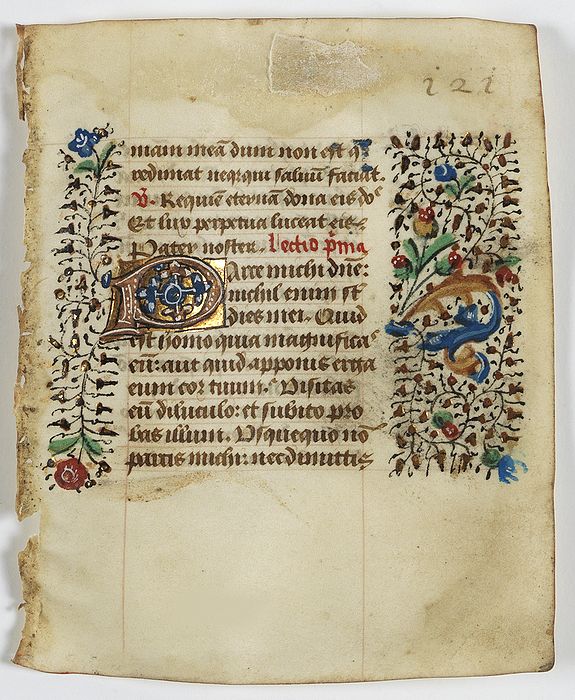 121
mam meā dum non est q̄
redimat neq₃ qui saluū faciat.
V. Requiē eternam dona eis dō
Et lux perpetua luceat eis
Pater noster. lectio p̄ma
Parce michi dñe:
nichil enim st̄
dies mei. Quid
est homo quia magnificas
eū: aut quid apponis erga
eum cor tuum. Visitas
eū diluculo: et subito pro
bas illum. Vsquequo nō
parcis michi: nec dimittis